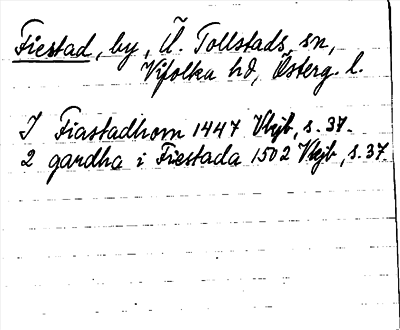 Fiestad, by, Ü. Tollstads sn,
Vifolka hd, Österg. l.
I Fiastadhom 1447 Vkjb, s. 37.
2 gardha i Fiestada 1502 Vkjb, s. 37